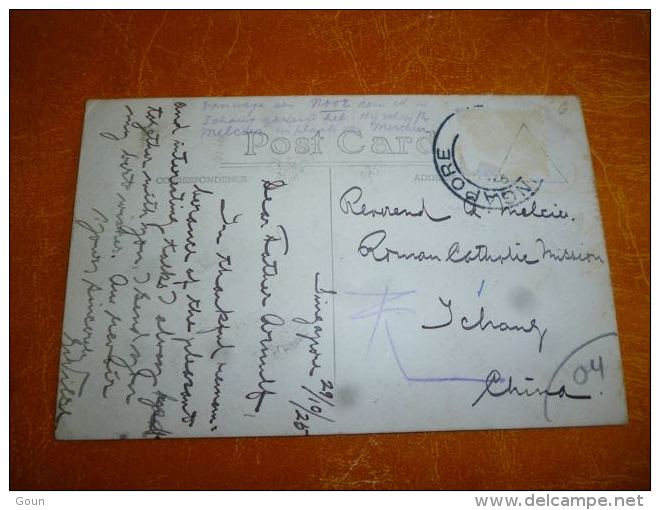 vanwege een Noor dien ik in
Ichang gekend heb. Hy schryft
Melcier in plaats Mercier
Post Card
CORRESPONDENCE
ADD
SINGAPORE
Singapore 29/10/25
Dear Father Arnulf,
In thankful remem-
berance of the pleasant
and interesting talks I always had
together with you, I send you
my best wishes. Au revoir
Yours sincerely
Reverend A. Melcier
Roman Catholic Mission
Ichang
China
04
Goun
http://www.delcampe.net